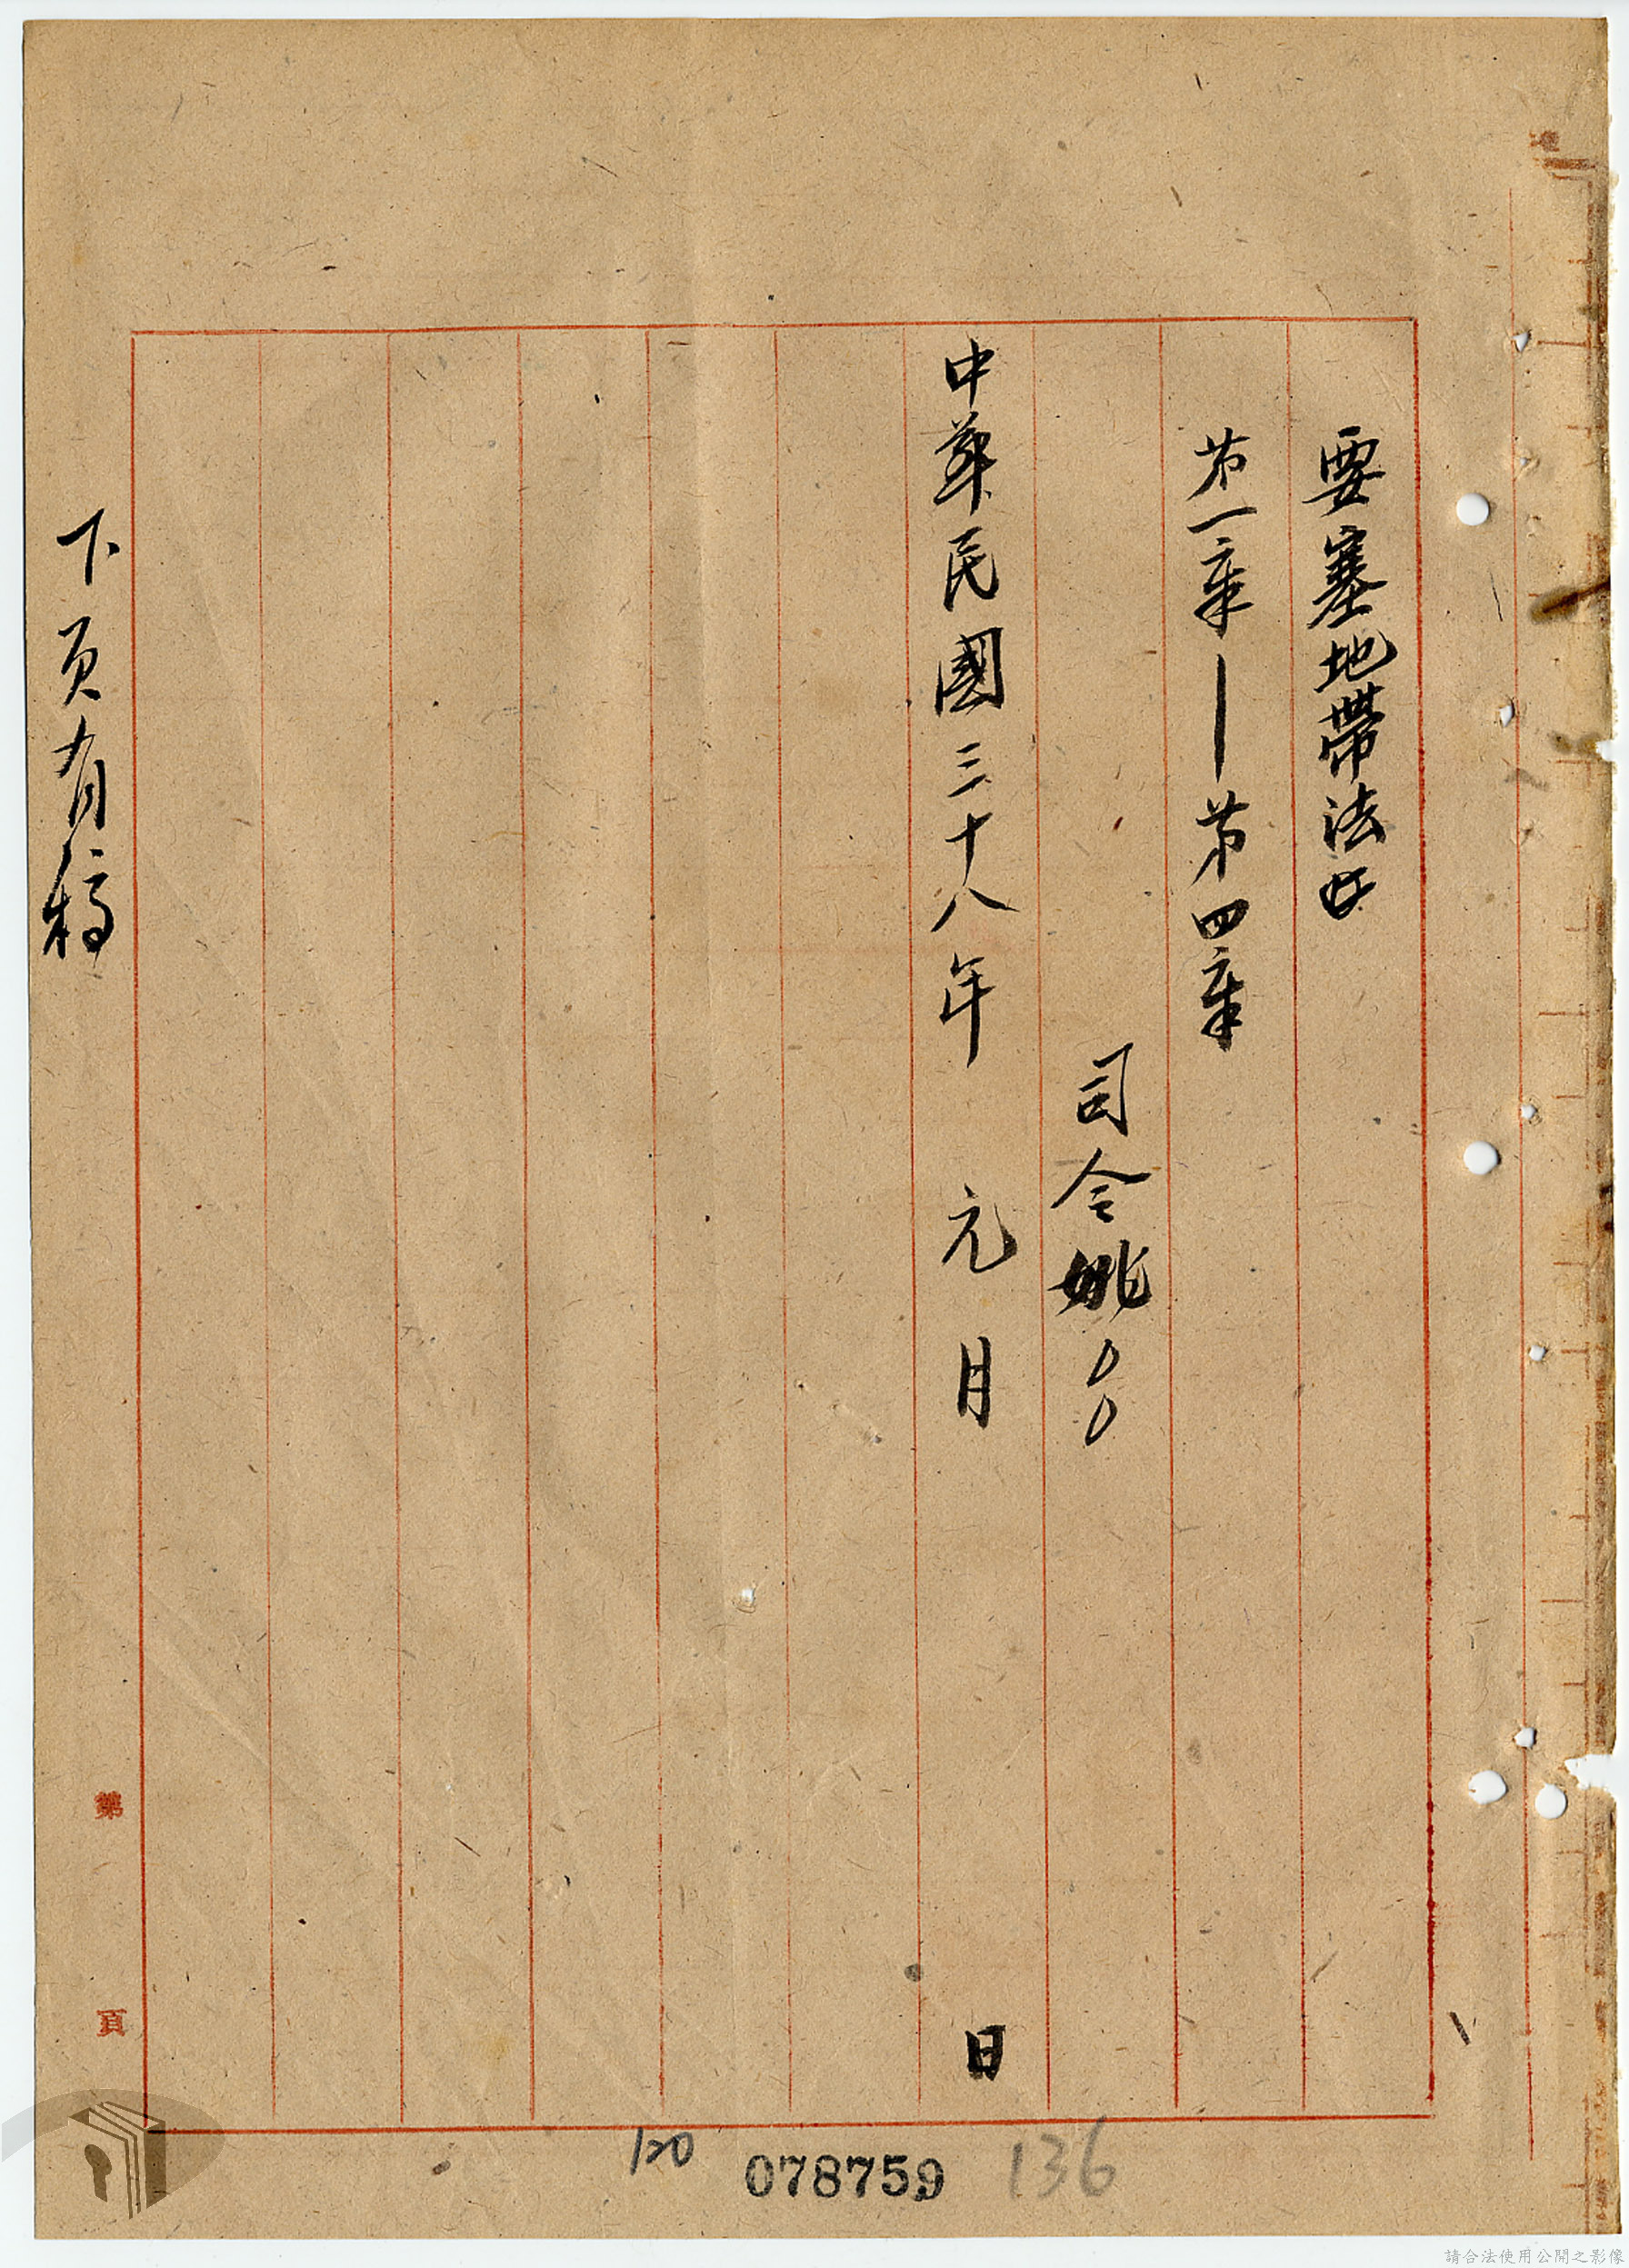 要塞地帶法
第一章——第四章
司令姚〇〇
中華民國三十八年 元月 日
下頁有稿
第 頁
120
078759
136
請合法使用公開之影像